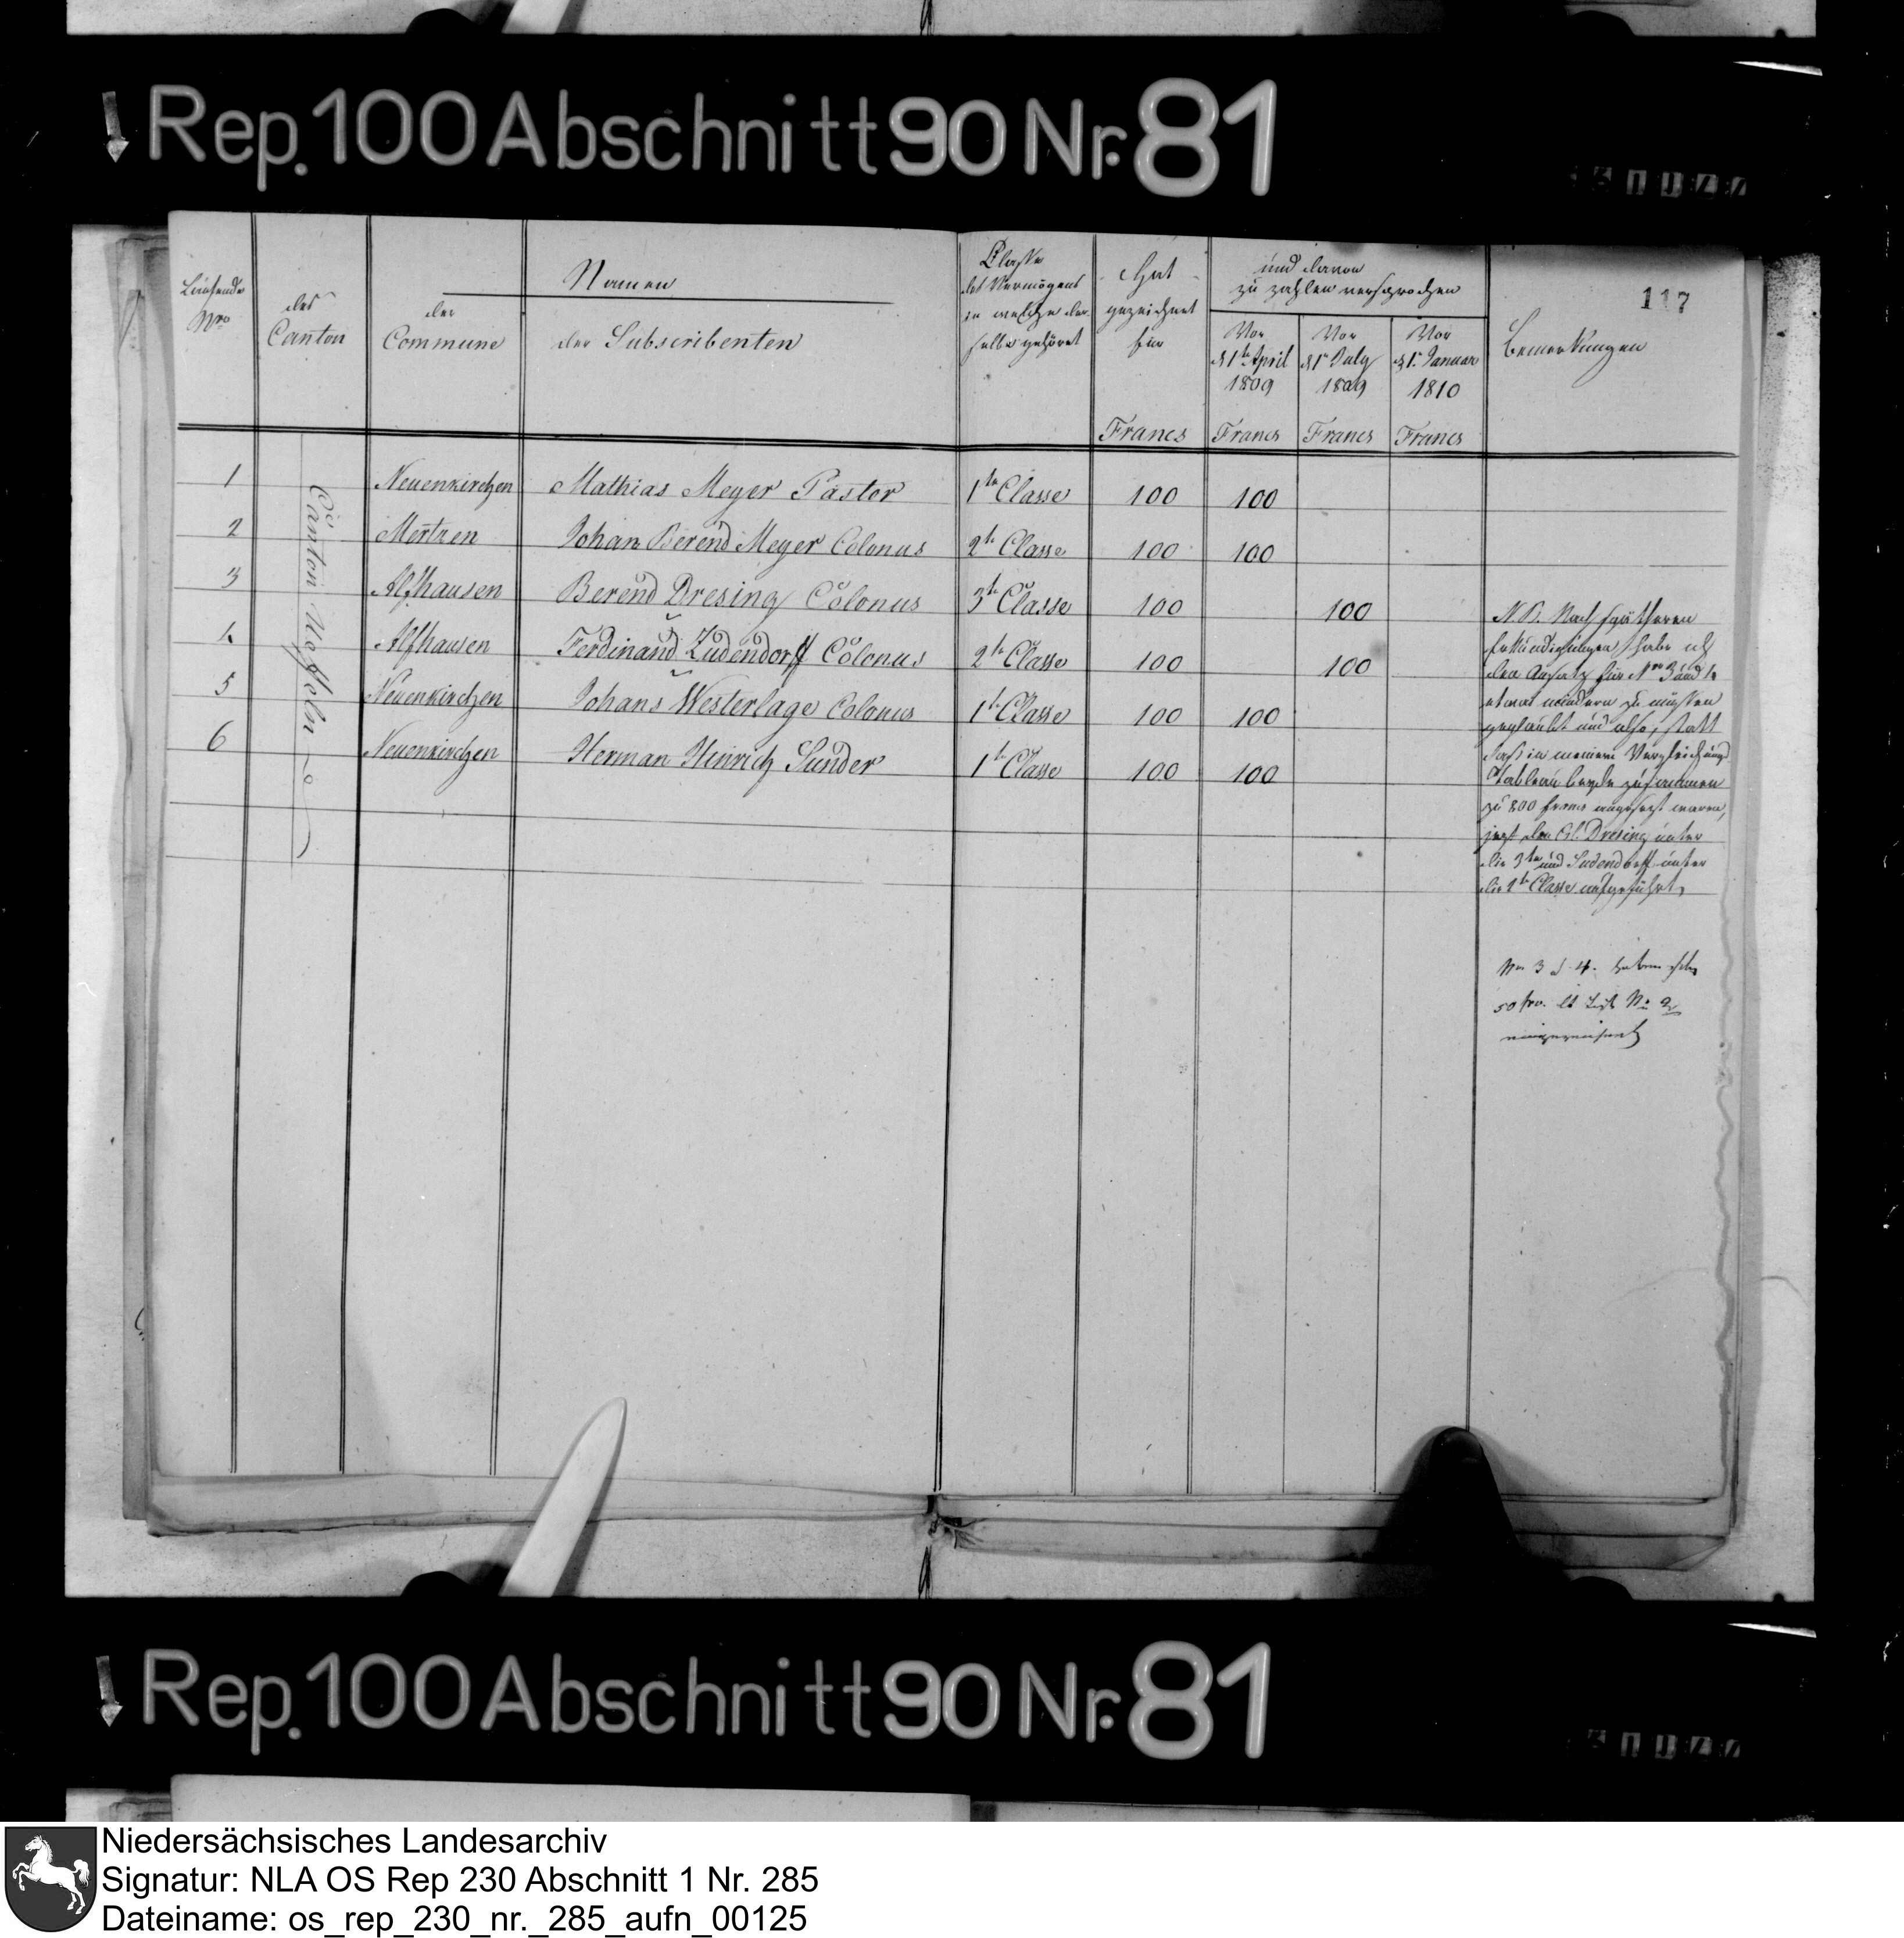 Rep. 100 Abschnitt 90 Nr. 81
117
Laufende Nro
des Canton
der Commune
Namen
der Subscribenten
Classe
des Vermögens
in welche der-
selbe gehöret
Hat
gezeichnet
für
und davon
zu zahlen versprochen
Vor
d 1te April
1809
Vor
d 1te July
1809
Vor
d 1te Januar
1810
Bemerkungen
Francs Francs Francs Francs
Canton Ueffeln
1 Neuenkirchen Mathias Meyer Pastor 1te Classe 100 100
2 Mertzen Johan Berend Meyer Colonus 2te Classe 100 100
3 Alfhausen Berend Dresing Colonus 3te Classe 100 100
4 Alfhausen Ferdinand Sudendorff Colonus 2te Classe 100 100
5 Neuenkirchen Johans Westerlage Colonus 1te Classe 100 100
6 Neuenkirchen Herman Hinrich Sunder 1te Classe 100 100
N.B. Nach späthern
Erkundigungen habe ich
den Ansatz für Nro 3 und 4
etwas mindern zu müssen
geglaubt und also, statt
daß in meinem Vergleichungs
Tableau beyde zusammen
zu 800 francs angesezt waren,
jezt den Col. Dresing unter
die 3te und Sudendorff unter
die 2te Classe aufgeführt
Nro 3 & 4. haben
50 frs. No 2
Rep. 100 Abschnitt 90 Nr. 81
Niedersächsisches Landesarchiv
Signatur: NLA OS Rep 230 Abschnitt 1 Nr. 285
Dateiname: os_rep_230_nr._285_aufn_00125